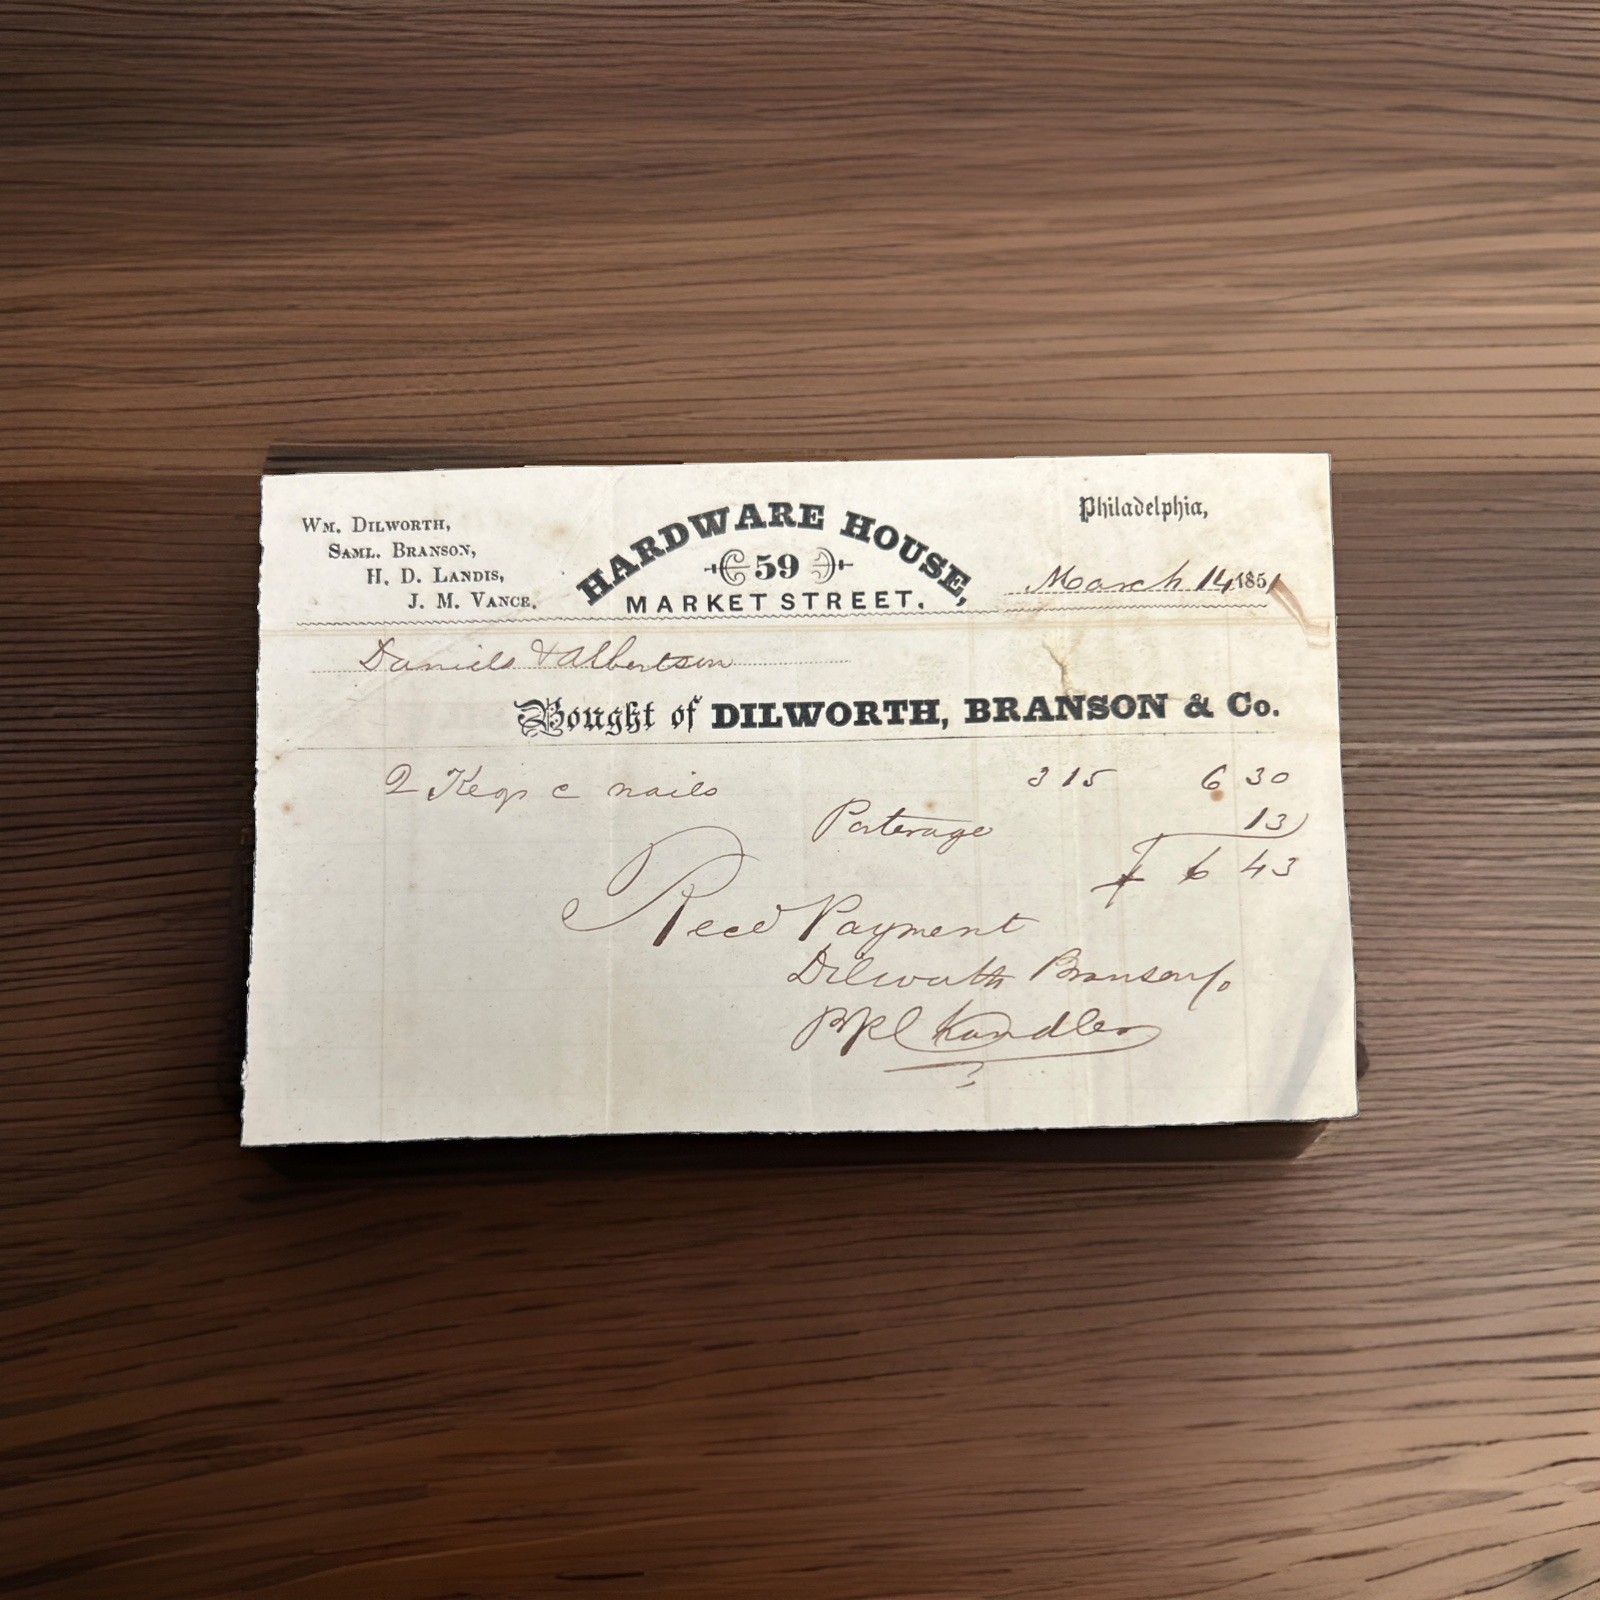 Wm. Dilworth,
Saml. Branson,
H. D. Landis,
J. M. Vance.
HARDWARE HOUSE,
59
MARKET STREET.
Philadelphia,
March 14 1851
Daniels & Albertson
Bought of DILWORTH, BRANSON & Co.
2 Kegs c nails 3 15 6 30
Porterage 13
$ 6 43
Recd Payment
Dilworth Branson Co
Chandler